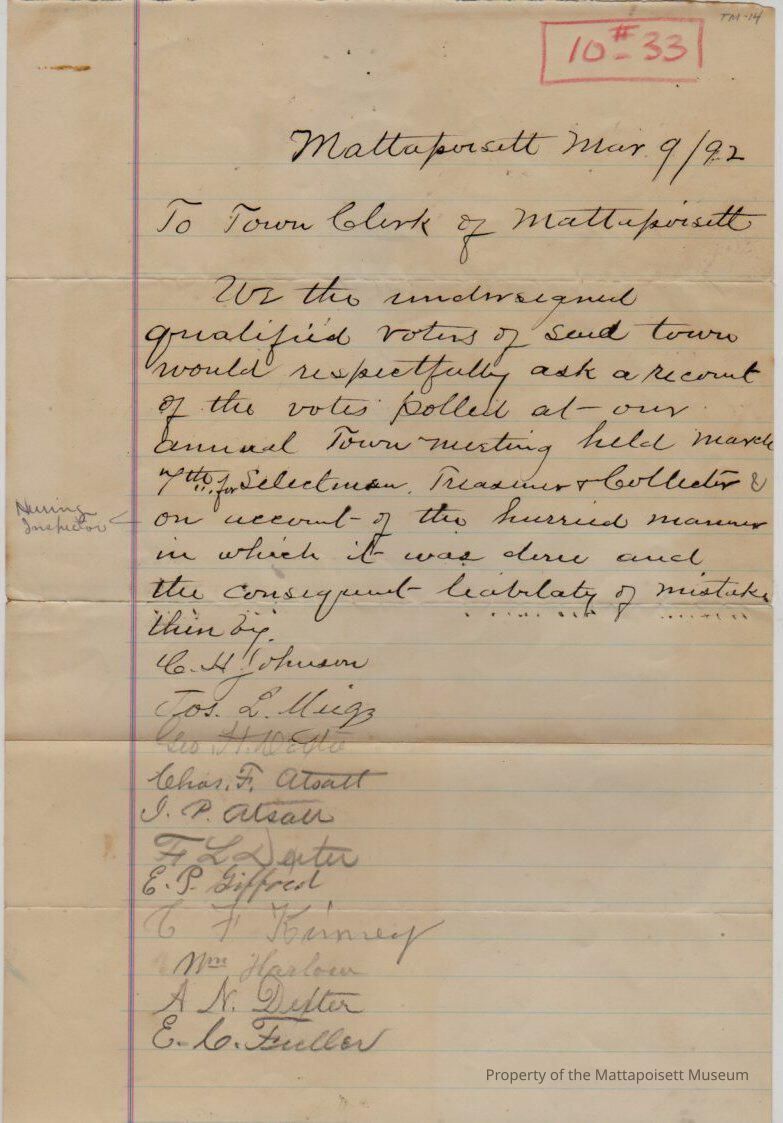 TM-14
10#33
Mattapoisett Mar 9/92
To Town Clerk of Mattapoisett
We the undersigned
qualified voters of said town
would respectfully ask a recount
of the votes polled at our
annual Town meeting held March
7th for Selectman, Treasurer & Collector &
Herring
Inspector
on account of the hurried manner
in which it was done and
the consequent liabilaty of mistake
then by.
C. H. Johnson
Jos. L. Meigs
Geo. H. Dexter
Chas. F. Atsatt
J. P. Atsatt
F L Dexter
E. P. Gifford
C F Kinney
Wm Harlow
A N. Dexter
E. C. Fuller
Property of the Mattapoisett Museum